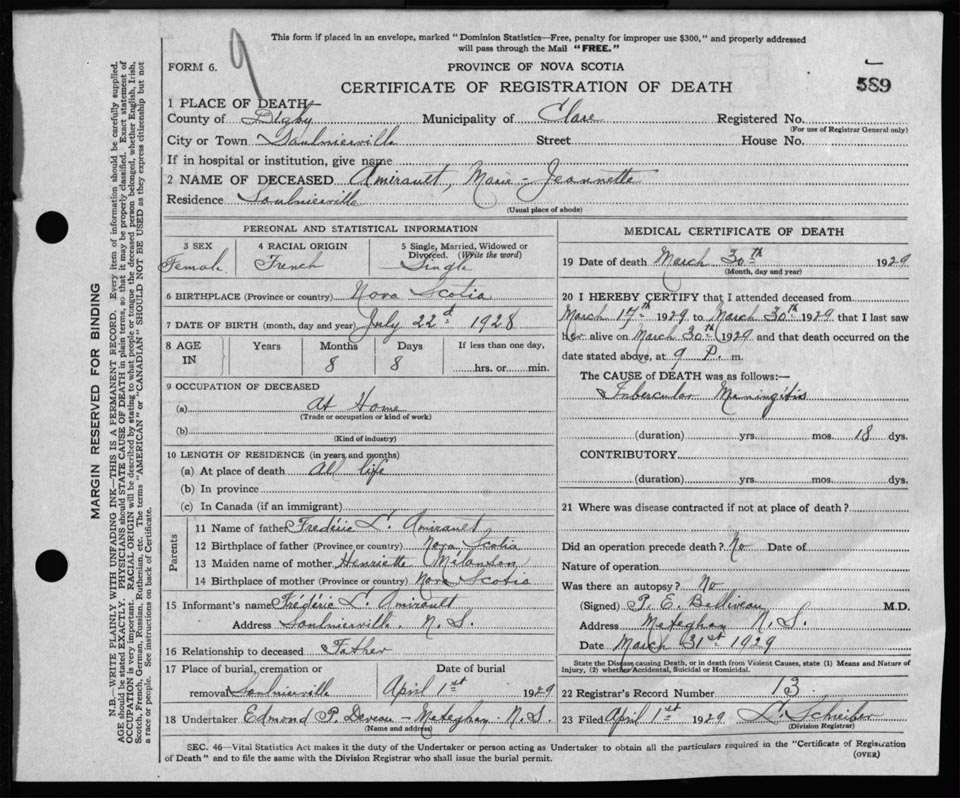 This form if placed in an envelope, marked "Dominion Statistics—Free, penalty for improper use $300," and properly addressed
will pass through the Mail "FREE."
9
FORM 6.
PROVINCE OF NOVA SCOTIA
CERTIFICATE OF REGISTRATION OF DEATH
589
1 PLACE OF DEATH—
County of Digby Municipality of Clare Registered No.
(For use of Registrar General only)
City or Town Saulnierville Street House No.
If in hospital or institution, give name
2 NAME OF DECEASED Amirault, Marie-Jeannette
Residence Saulnierville
(Usual place of abode)
PERSONAL AND STATISTICAL INFORMATION
3 SEX 4 RACIAL ORIGIN 5 Single, Married, Widowed or
Divorced. (Write the word)
Female French Single
6 BIRTHPLACE (Province or country) Nova Scotia
7 DATE OF BIRTH (month, day and year) July 22d 1928
8 AGE IN Years Months Days If less than one day,
8 8 hrs. or min.
9 OCCUPATION OF DECEASED
(a) At Home
(Trade or occupation or kind of work)
(b)
(Kind of industry)
10 LENGTH OF RESIDENCE (in years and months)
(a) At place of death All life
(b) In province
(c) In Canada (if an immigrant)
Parents
11 Name of father Frédéric L. Amirault
12 Birthplace of father (Province or country) Nova Scotia
13 Maiden name of mother Henriette Mélanson
14 Birthplace of mother (Province or country) Nova Scotia
15 Informant's name Frédéric L. Amirault
Address Saulnierville. N.S.
16 Relationship to deceased Father
17 Place of burial, cremation or Date of burial
removal Saulnierville April 1st 1929
18 Undertaker Edmond P. Deveau - Meteghan N.S.
(Name and address)
MEDICAL CERTIFICATE OF DEATH
19 Date of death March 30th 1929
(Month, day and year)
20 I HEREBY CERTIFY that I attended deceased from
March 17th 1929 to March 30th 1929 that I last saw
her alive on March 30th 1929 and that death occurred on the
date stated above, at 9 P. m.
The CAUSE of DEATH was as follows:—
Tubercular Meningitis
(duration) yrs. mos. 18 dys.
CONTRIBUTORY
(duration) yrs. mos. dys.
21 Where was disease contracted if not at place of death?
Did an operation precede death? No Date of
Nature of operation
Was there an autopsy? No
(Signed) P. E. Belliveau M.D.
Address Meteghan N.S.
Date March 31st 1929
State the Disease causing Death, or in death from Violent Causes, state (1) Means and Nature of
Injury, (2) whether Accidental, Suicidal or Homicidal.
22 Registrar's Record Number 13
23 Filed April 1st 1929 L. Schreiber
(Division Registrar)
SEC. 46—Vital Statistics Act makes it the duty of the Undertaker or person acting as Undertaker to obtain all the particulars required in the "Certificate of Registration
of Death" and to file the same with the Division Registrar who shall issue the burial permit.
(OVER)
MARGIN RESERVED FOR BINDING
N.B.—WRITE PLAINLY WITH UNFADING INK—THIS IS A PERMANENT RECORD. Every item of information should be carefully supplied.
AGE should be stated EXACTLY. PHYSICIANS should STATE CAUSE OF DEATH in plain terms, so that it may be properly classified. Exact statement of
OCCUPATION is very important. RACIAL ORIGIN will be described by stating to what people or tongue the deceased person belonged, whether English, Irish,
Scotch, French, German, Russian, Ruthenian, etc. The terms "AMERICAN" or "CANADIAN" SHOULD NOT BE USED as they express citizenship but not
a race or people. See instructions on back of Certificate.